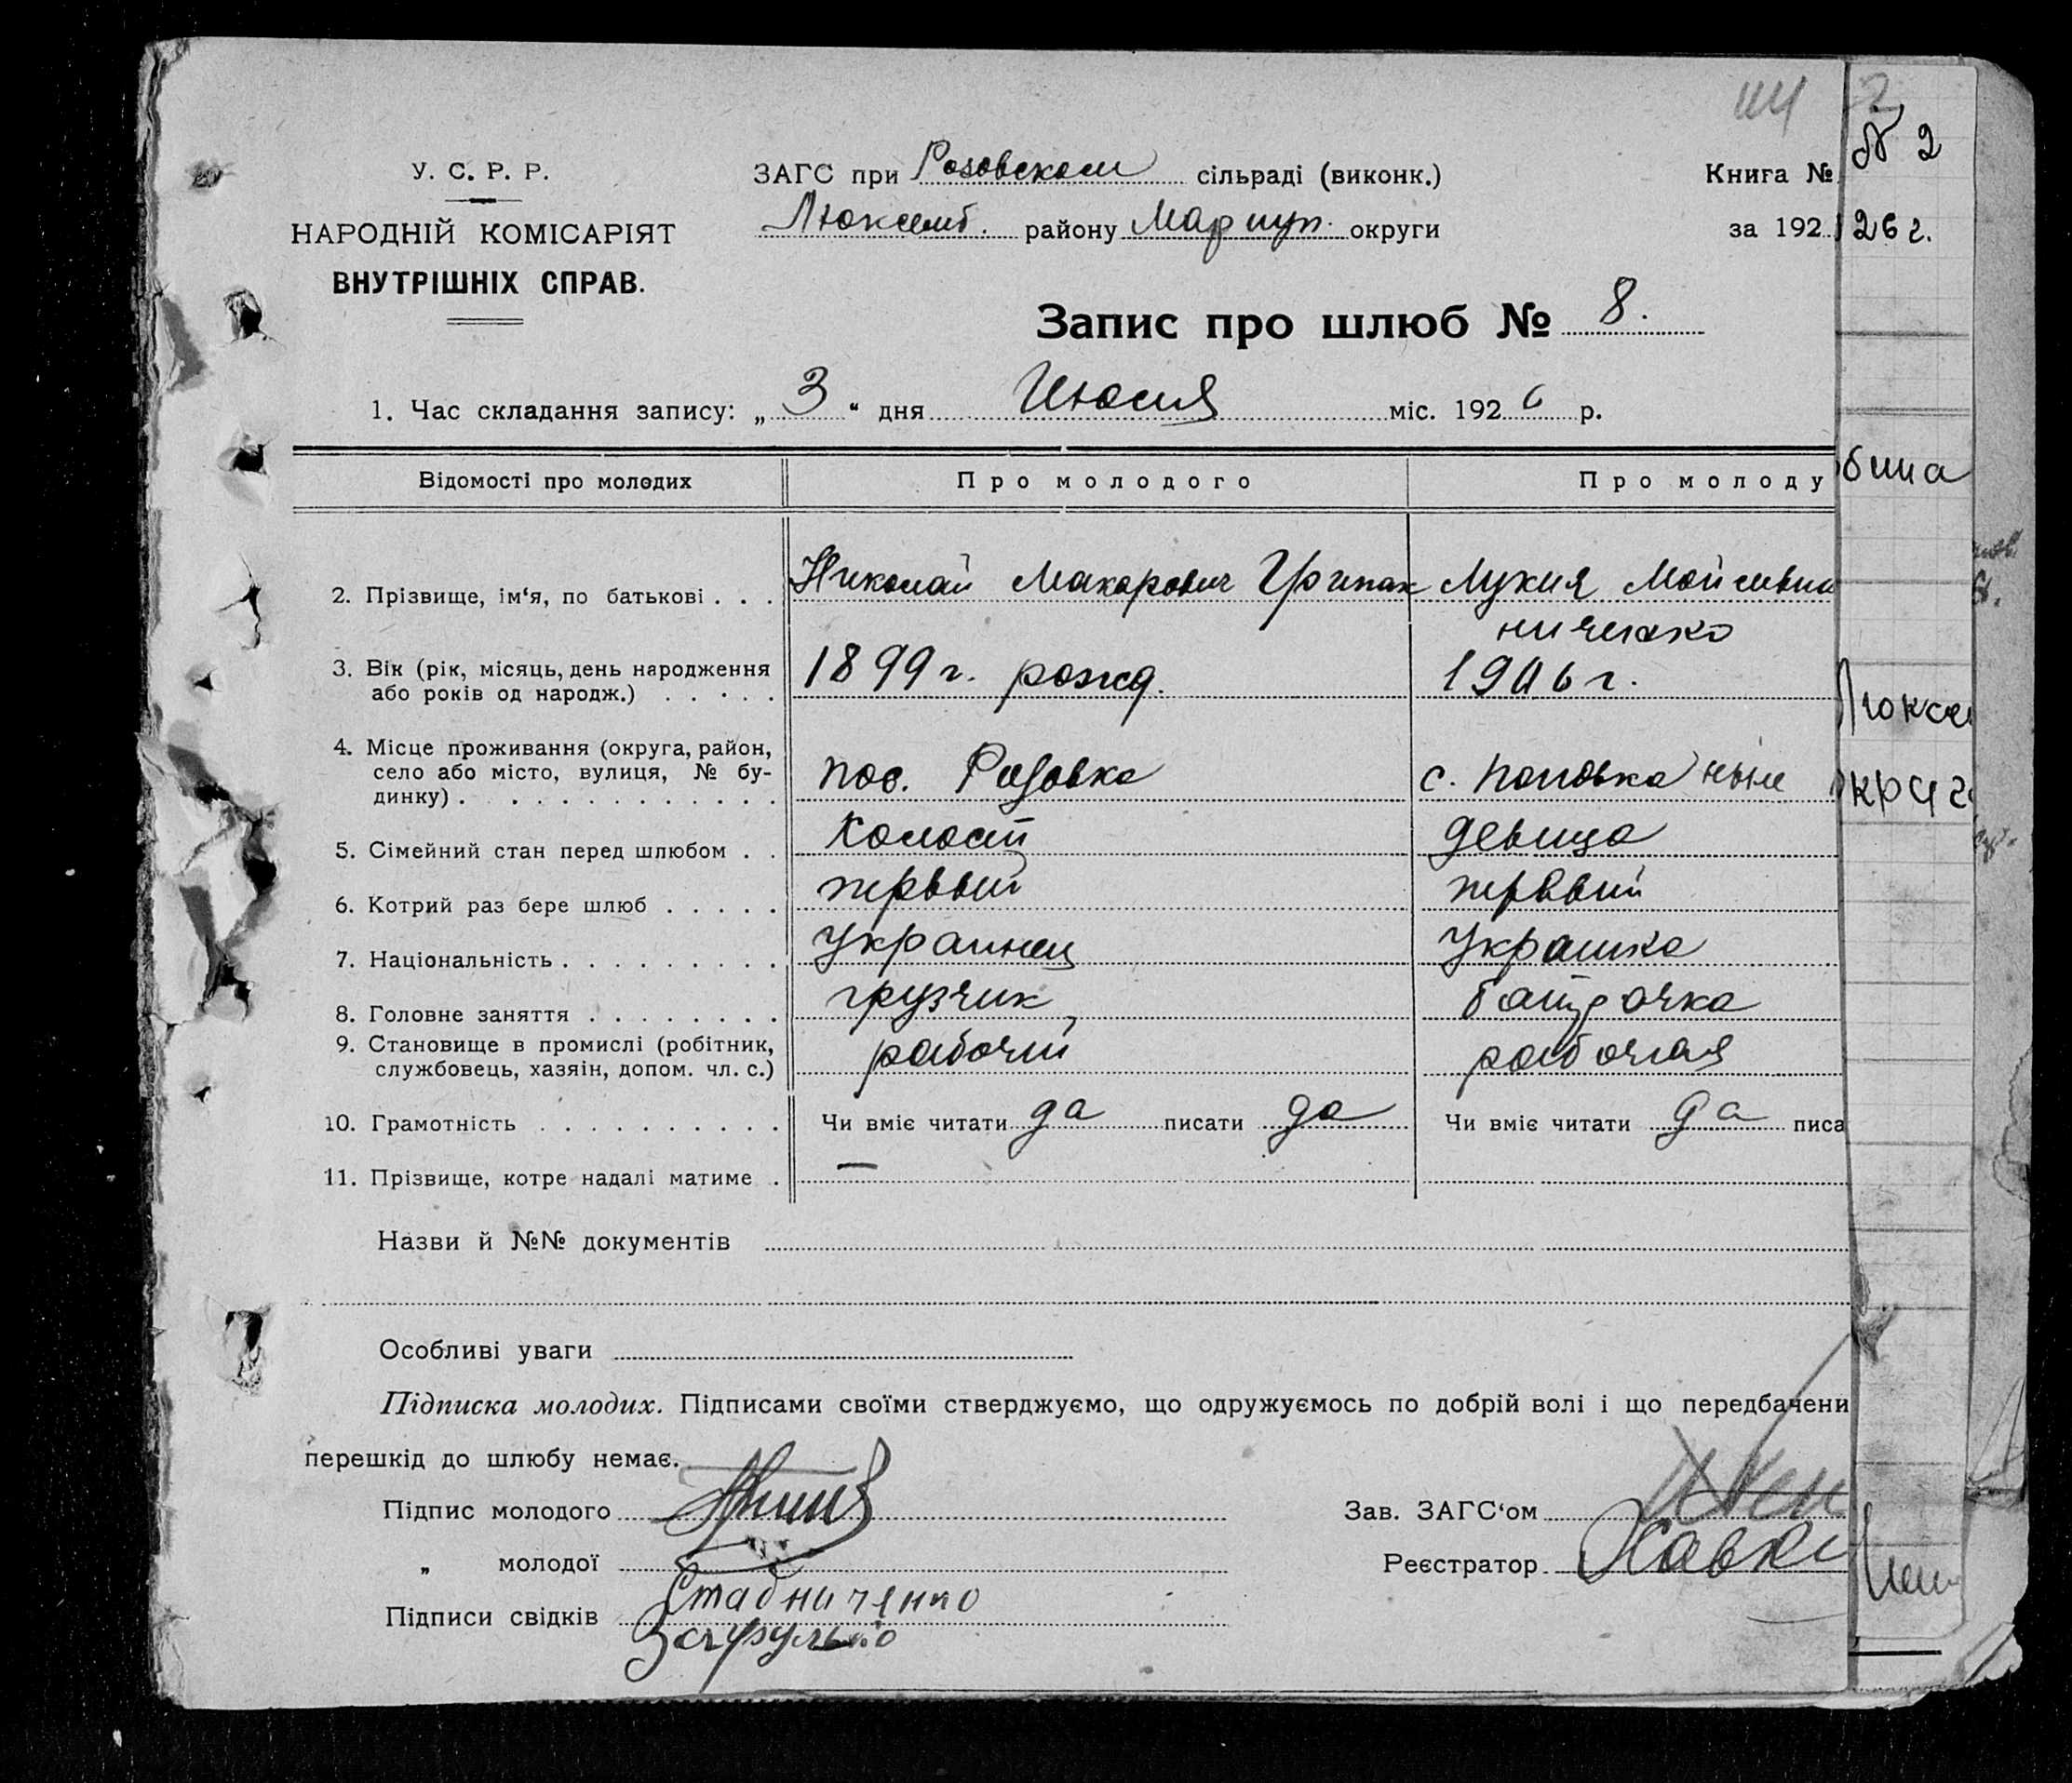 114 2
У. С. Р. Р.
НАРОДНІЙ КОМІСАРІЯТ
ВНУТРІШНІХ СПРАВ.
ЗАГС при Розовском сільраді (виконк.)
Люксемб. району Мариуп. округи
Книга № 2
за 192 26 г.
Запис про шлюб № 8.
1. Час складання запису: „ 3 “ дня Июля міс. 192 6 р.
Відомості про молодих Про молодого Про молоду
бина
2. Прізвище, ім‘я, по батькові . . . Николай Макарович Грипак Лукия Мойсивна
ниченко
3. Вік (рік, місяць, день народження 1899 г. рожд. 1906 г.
або років од народж.) . . . . .
Люксем
4. Місце проживання (округа, район, пос. Розовка с. Поповка ныне
село або місто, вулиця, № бу-
динку) . . . . . . . . . . . .
5. Сімейний стан перед шлюбом . . Холост девица
6. Котрий раз бере шлюб . . . . . первый первый
7. Національність . . . . . . . . . украинец украинка
8. Головне заняття . . . . . . . . грузчик батрачка
9. Становище в промислі (робітник, рабочий рабочая
службовець, хазяін, допом. чл. с.)
10. Грамотність . . . . . . . . . . Чи вміє читати да писати да Чи вміє читати да писа
11. Прізвище, котре надалі матиме . —
Назви й №№ документів
Особливі уваги
Підписка молодих. Підписами своїми стверджуємо, що одружуємось по добрій волі і що передбачени
перешкід до шлюбу немає.
Підпис молодого
Зав. ЗАГС‘ом
„ молодої
Реєстратор
Підписи свідків Стадниченко